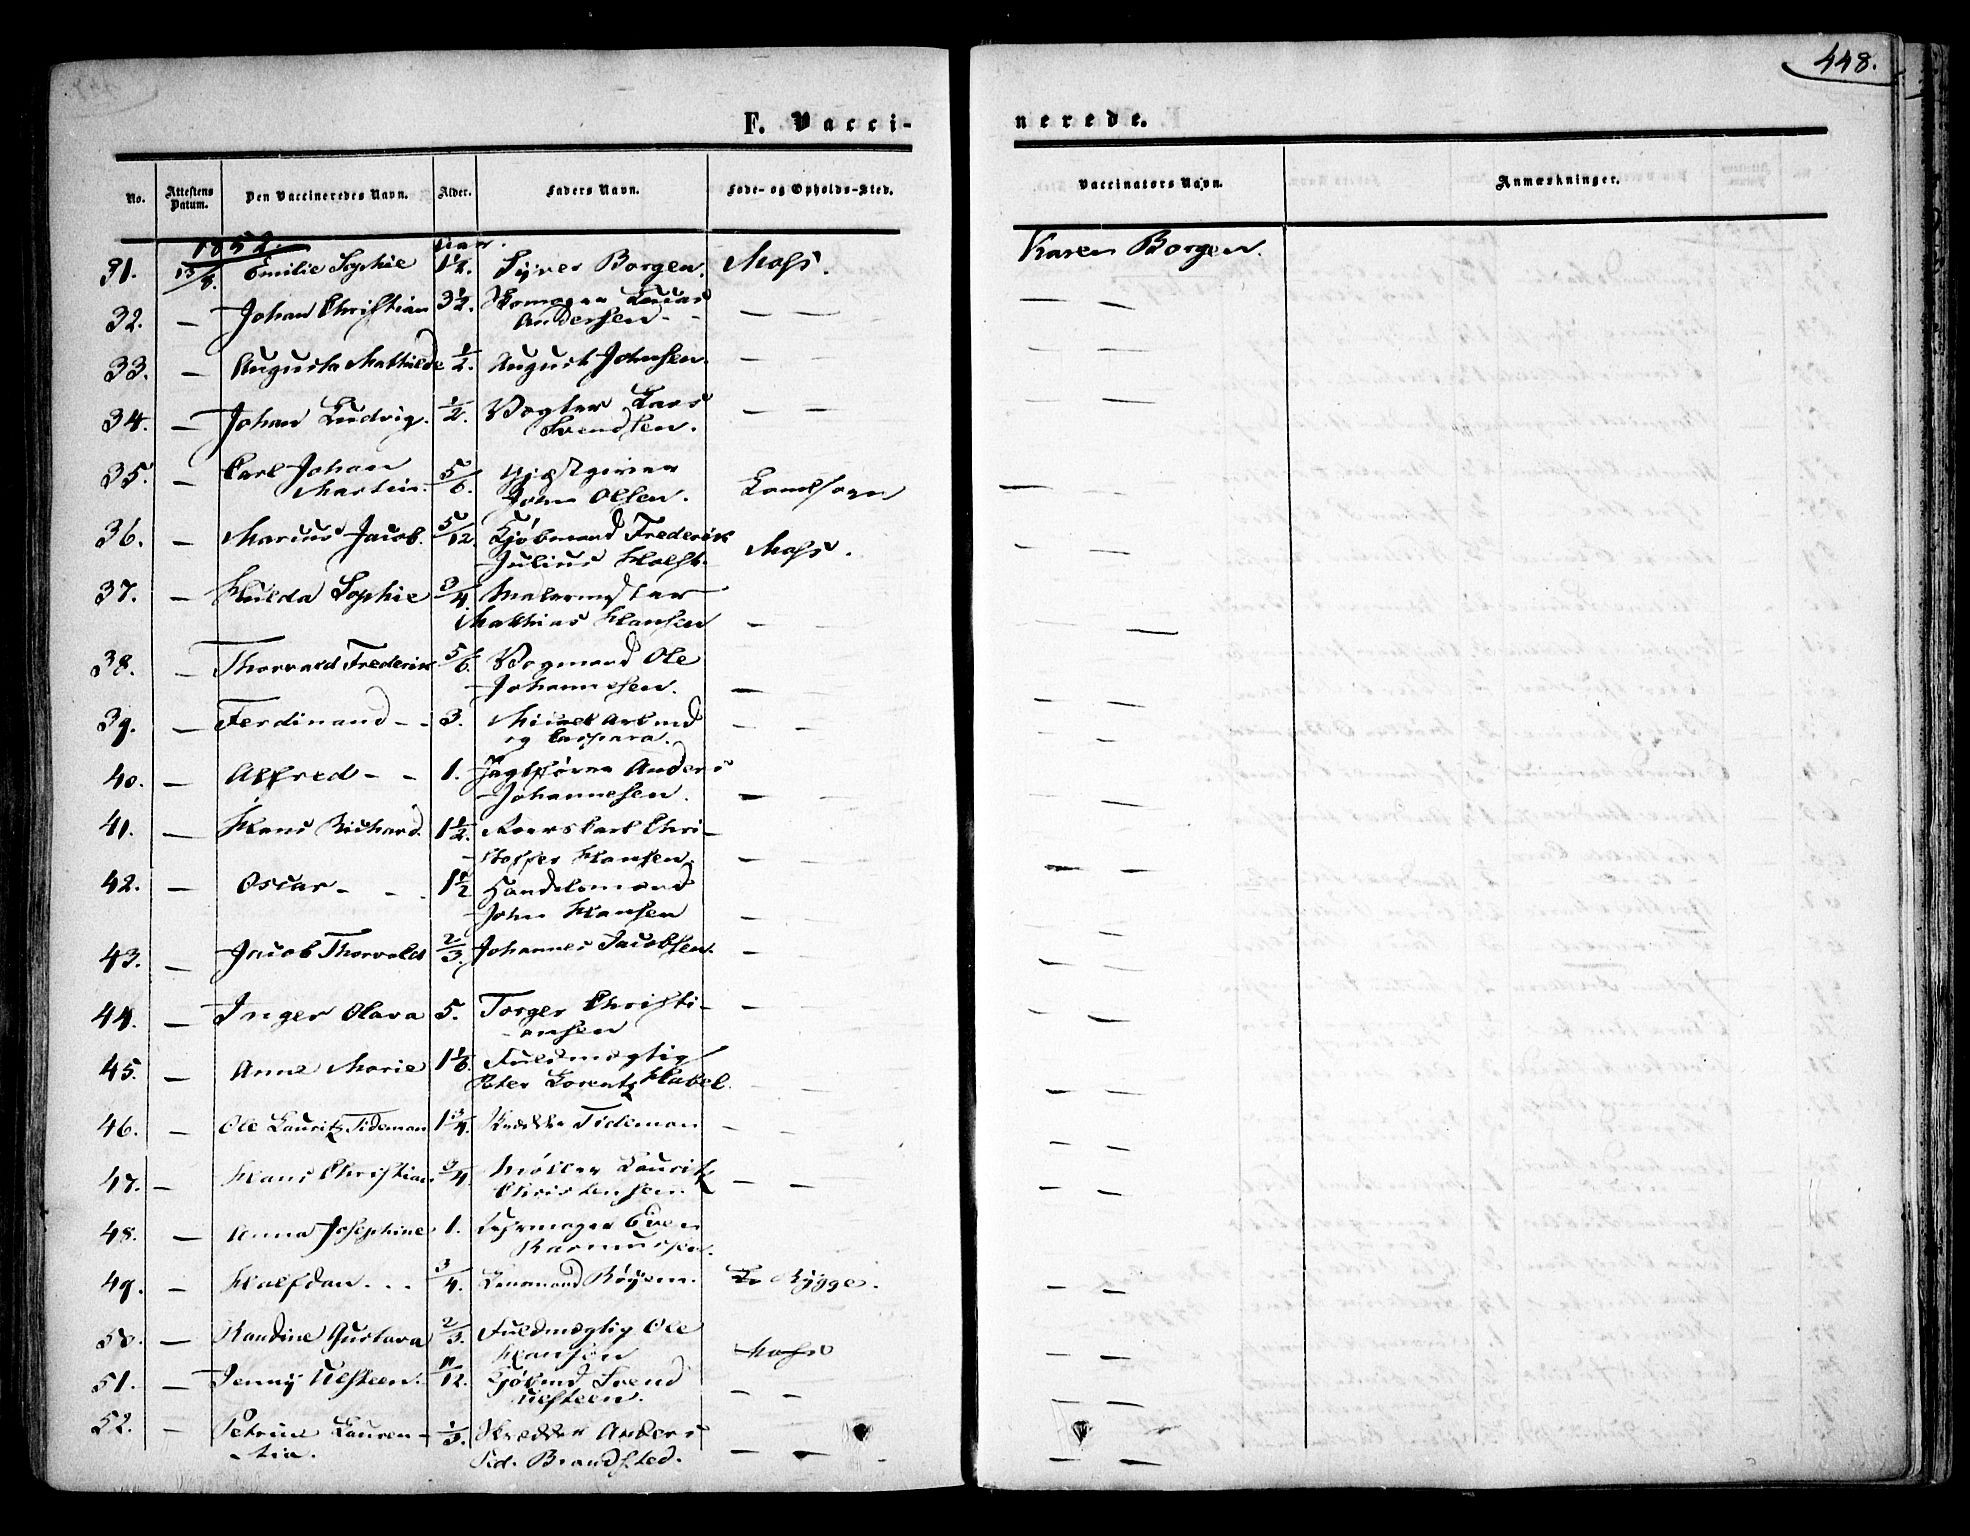 448.
F. Vacci- nerede.
No. Attestens Datum. Den Vaccineredes Navn. Alder. Faders Navn. Føde- og Opholds-Sted. Vaccinators Navn. Anmærkninger.
1852. Aar.
31. 15/8. Emilie Sophie 1 1/2. Syver Borgen. Moss. Karen Borgen.
32. — Johan Christian 3 1/2. Lucas
Andersen - - — — — —
33. — Augusta Mathilde 1/2. August Johnsen. — — — —
34. — Johan Ludvig. 1/2. Vogter Lars
Svendsen. — — — —
35. — Carl Johan 5/6. Gjæstgiver
Martin. John Olsen. — —
36. — Marius Jacob. 5/12. Kjøbmand Frederik
Julius Holst. Moss. — —
37. — Hulda Sophie 3/4. Malermester
Mathias Hansen — — — —
38. — Thorvald Frederik 5/6. Vognmand Ole
Johannesen. — — — —
39. — Ferdinand - - 3.
og Caspara. — — — —
40. — Alfred - - 1. Anders
Johannesen. — — — —
41. — Hans Richard. 1 1/2. Chri-
stoffer Hansen. — — — —
42. — Oscar - - 1 1/2 Handelsmand
John Hansen — — — —
43. — Jacob Thorvald 2/3. Johannes Jacobsen. — — — —
44. — Inger Olava 5. Torger Christi-
ansen — — — —
45. — Anne Marie 1 1/6. Fuldmægtig
Peter Lorentz Habel. — — — —
46. — Ole Lauritz Tideman 1 3/4. Tideman — — — —
47. — Hans Christian 3/4. Møller Lauritz
Christensen. — — — —
48. — Anna Josephine 1. Even
Rasmussen.
49. — Halfdan - - - 3/4. Bøyem. Rygge. — —
50. — Randine Gustava 2/3. Fuldmægtig Ole
Hansen Moss — —
51. — Jenny Ulsteen. 11/12. Kjøbmd Svend
Ulsteen. — — — —
52. — Petrine Lauren- 1/3. Anders
tia. Sid. Brandsted. — — — —